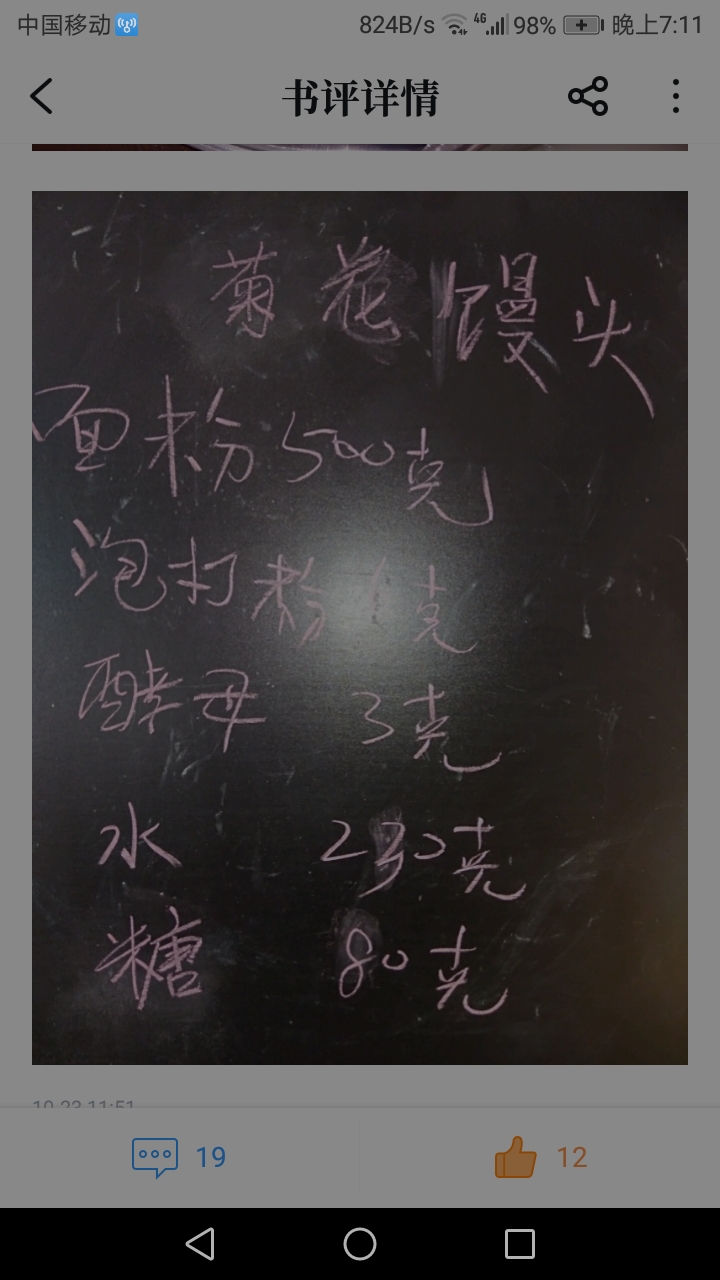 中国移动 824B/s 4G 98% 晚上7:11
书评详情
菊花馒头
面粉500克
泡打粉 克
酵母 3克
水 230克
糖 80克
10-23 11:51
19 12